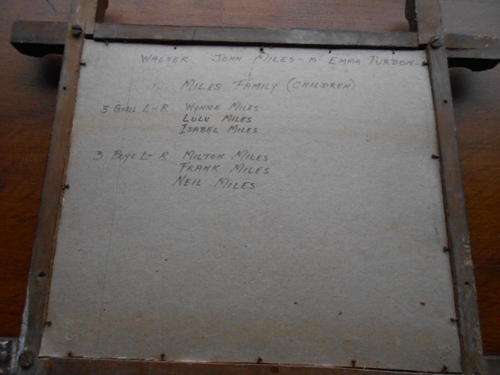 WALTER JOHN MILES - M. EMMA PURDON
MILES FAMILY (CHILDREN)
3 GIRLS L-R WINNIE MILES
LULU MILES
ISABEL MILES
3 BOYS L-R MILTON MILES
FRANK MILES
NEIL MILES